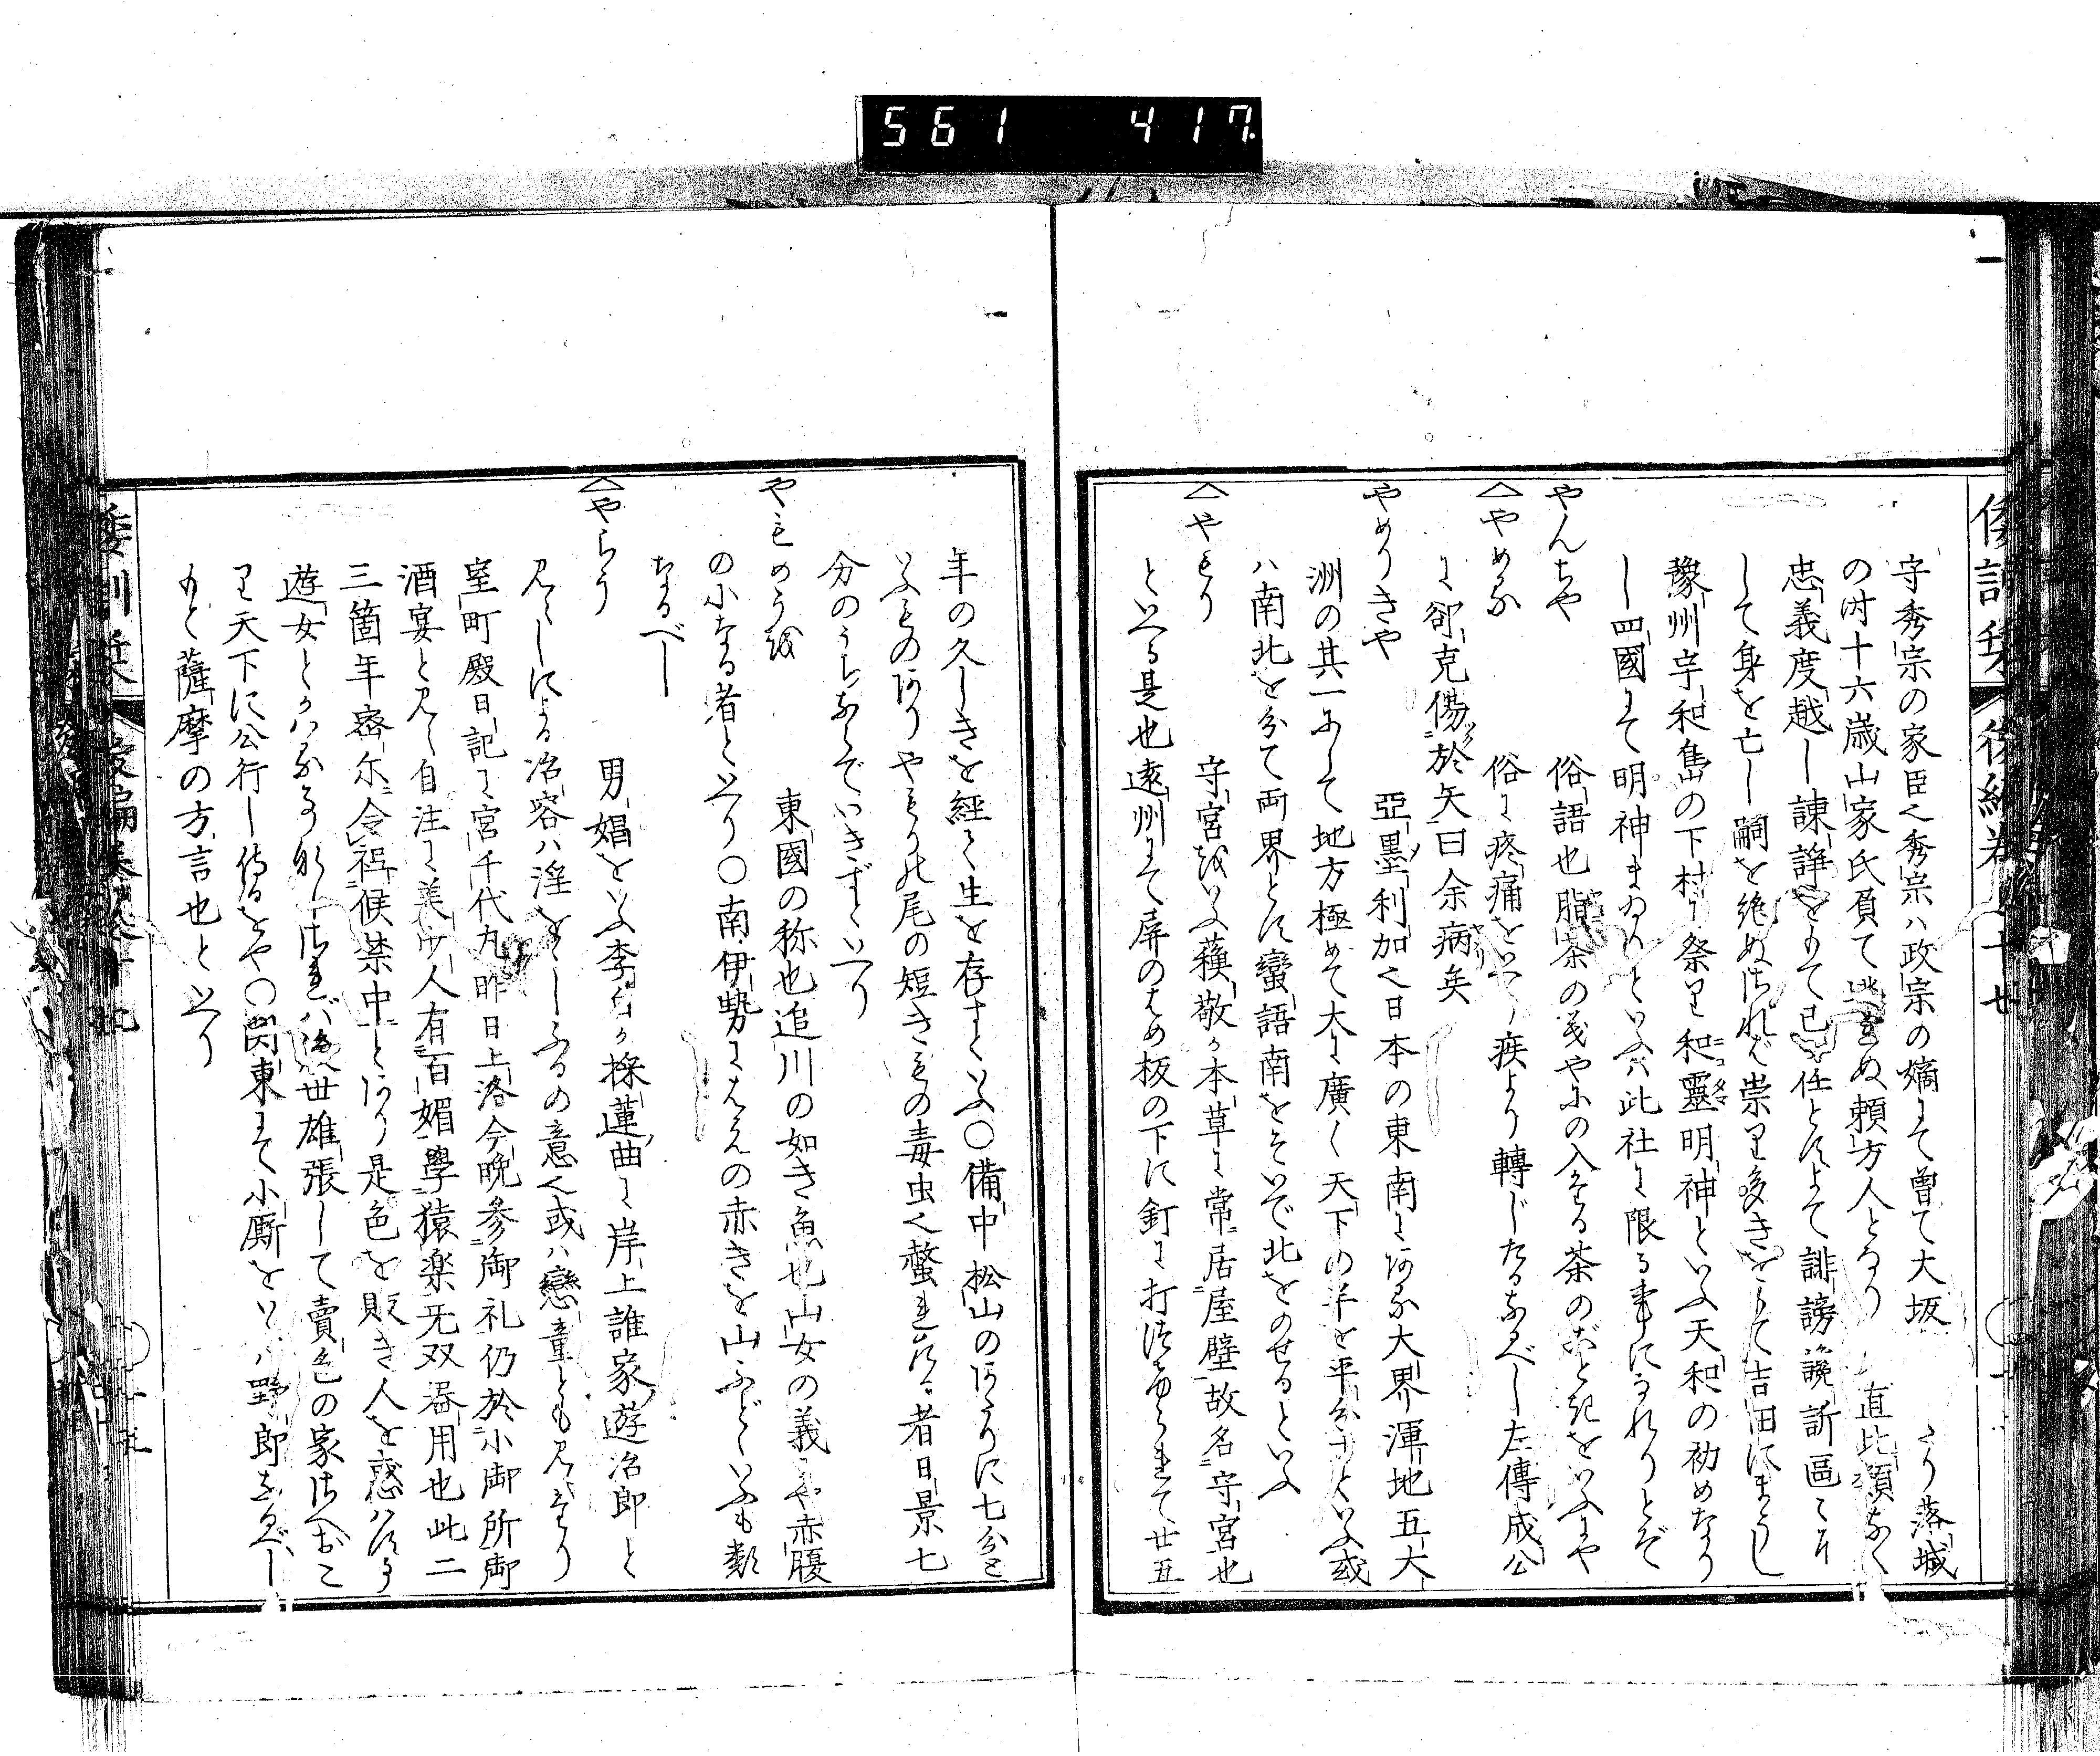 561 417
守秀宗の家臣也秀宗ハ政宗の嫡にて曾て大坂 より落城
の時十六歳山家氏負て遁しめぬ頼方人となり 直比類なく
忠義度越し諌諍をもて己か任とによて誹謗讒訴區々に
して身を亡し嗣を絶ぬされば祟り多きをもて吉田にまうし
豫州宇和島の下村に祭り和靈明神といふ天和の初めなり
し四國にて明神まゐりといふハ此社に限る事になれりとぞ
やんちや 俗語也脂茶の義やにの入たる茶のごときをいふにや
△やめな 俗に疼痛をいへり疾より轉じたるなるべし左傳成公
に郤克傷於矢曰余病矣
やめりきや 亞墨利加也日本の東南にある大界渾地五大
洲の其一にして地方極めて大に廣く天下の半を平分すといふ或
ハ南北を分て両界とす蠻語南をそいで北をのせるといふ
△やもり 守宮をいふ蘓敬か本草に常居屋壁故名守宮也
といへる是也遠州にて屏のはめ板の下に釘に打付られて廿五
年の久しきを經て生を存すといふ〇備中松山のあたりに七分と
いふものありやもりの尾の短きもの毒虫也螫れたる者日景七
分のうちならでいきずといへり
やもめうを 東國の称也追川の如き魚也山女の義にや赤腹
の小なる者といへり〇南伊勢にはえの赤きを山ぶどいふも類
なるべし
△やらう 男娼をいふ李白か採蓮曲に岸上誰家遊冶郎と
見えしによる冶容ハ淫ををしふるの意也或ハ戀童とも見えたり
室町殿日記に宮千代丸昨日上洛今晩参御礼仍於小御所御
酒宴と見え自注に美少人有百媚學猿楽无双器用也此二
三箇年密尓令祗候禁中とあり是色を販き人を惑ハする
遊女とかハる事なしされバ後世雄張して賣色の家さへおこ
り天下に公行し侍るをや〇関東にて小厮をいふハ野郎なるべし
もと薩摩の方言也といへり